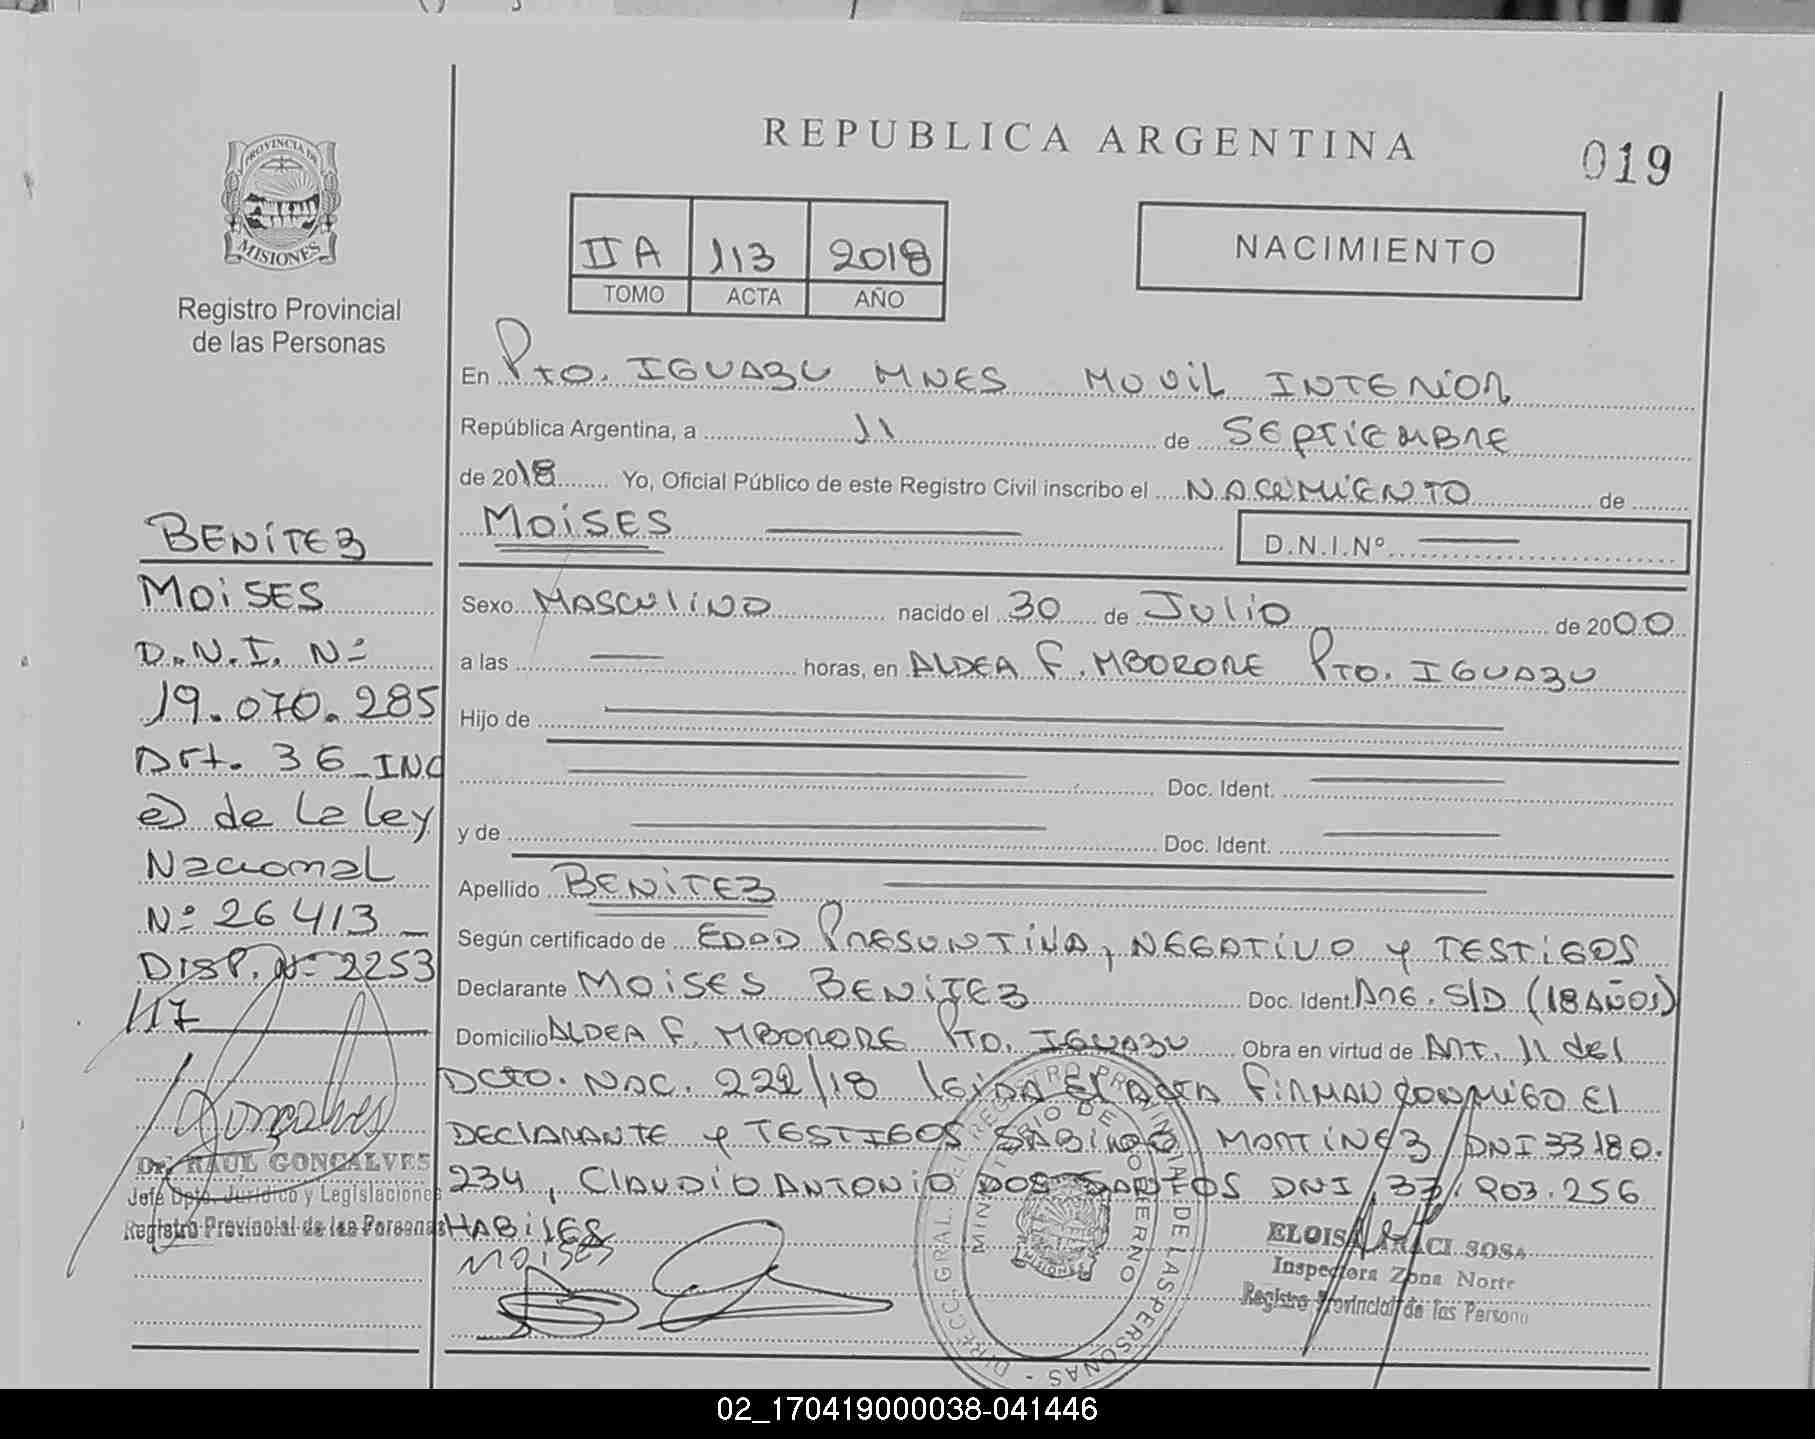 REPUBLICA ARGENTINA
019
PROVINCIA DE
MISIONES
Registro Provincial
de las Personas
II A 113 2018
TOMO ACTA AÑO
NACIMIENTO
En Pto. IGUAZU MNES MOVIL INTERIOR
República Argentina, a 11 de SEPTIEMBRE
de 2018 Yo, Oficial Público de este Registro Civil inscribo el NACIMIENTO de
MOISES D.N.I.Nº
Sexo MASCULINO nacido el 30 de JULIO de 2000
a las horas, en ALDEA F. MBORORE PTO. IGUAZU
Hijo de
Doc. Ident.
y de Doc. Ident.
Apellido BENITEZ
Según certificado de EDAD PRESUNTIVA, NEGATIVO y TESTIGOS
Declarante MOISES BENITEZ Doc. Ident. ARG. S/D (18 AÑOS)
Domicilio ALDEA F. MBORORE PTO. IGUAZU Obra en virtud de ART. 11 del
DCTO. NAC. 222/18 leida El ACTA FIRMAN CONMIGO El
DEClARANTE y TESTIGOS SABINO MARTINEZ DNI 33.180.
234, ClAUDIO ANTONIO DOS SANTOS DNI 33.903.256
HABILES
moises
BENITEZ
MOISES
D.N.I. Nº
19.070.285
Art. 36 INC
e) de la ley
Nacional
Nº 26413
DISP. Nº 2253
/17
Goncalves
Dr. RAUL GONCALVES
Jefe Dpto. Juridico y Legislaciones
Registro Provincial de las Personas
DIRECC. GRAL. DEL REGISTRO PROVINCIAL DE LAS PERSONAS
MINISTERIO DE GOBIERNO
MISIONES
ELOISA ARACI SOSA
Inspectora Zona Norte
Registro Provincial de las Persona
02_170419000038-041446